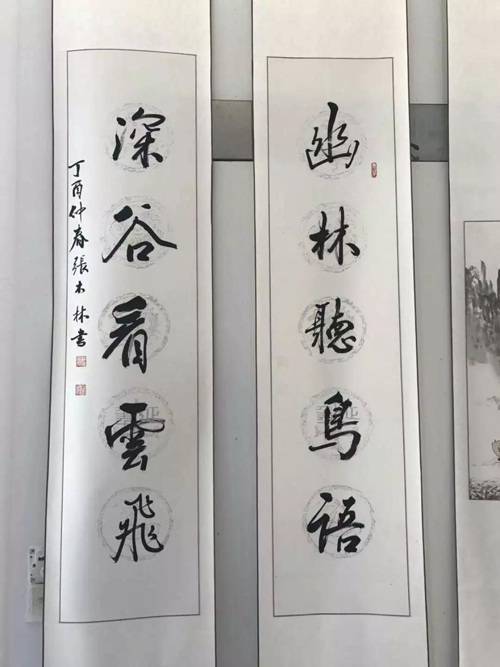 幽林聽鳥語
深谷看雲飛
丁酉仲春張木林書